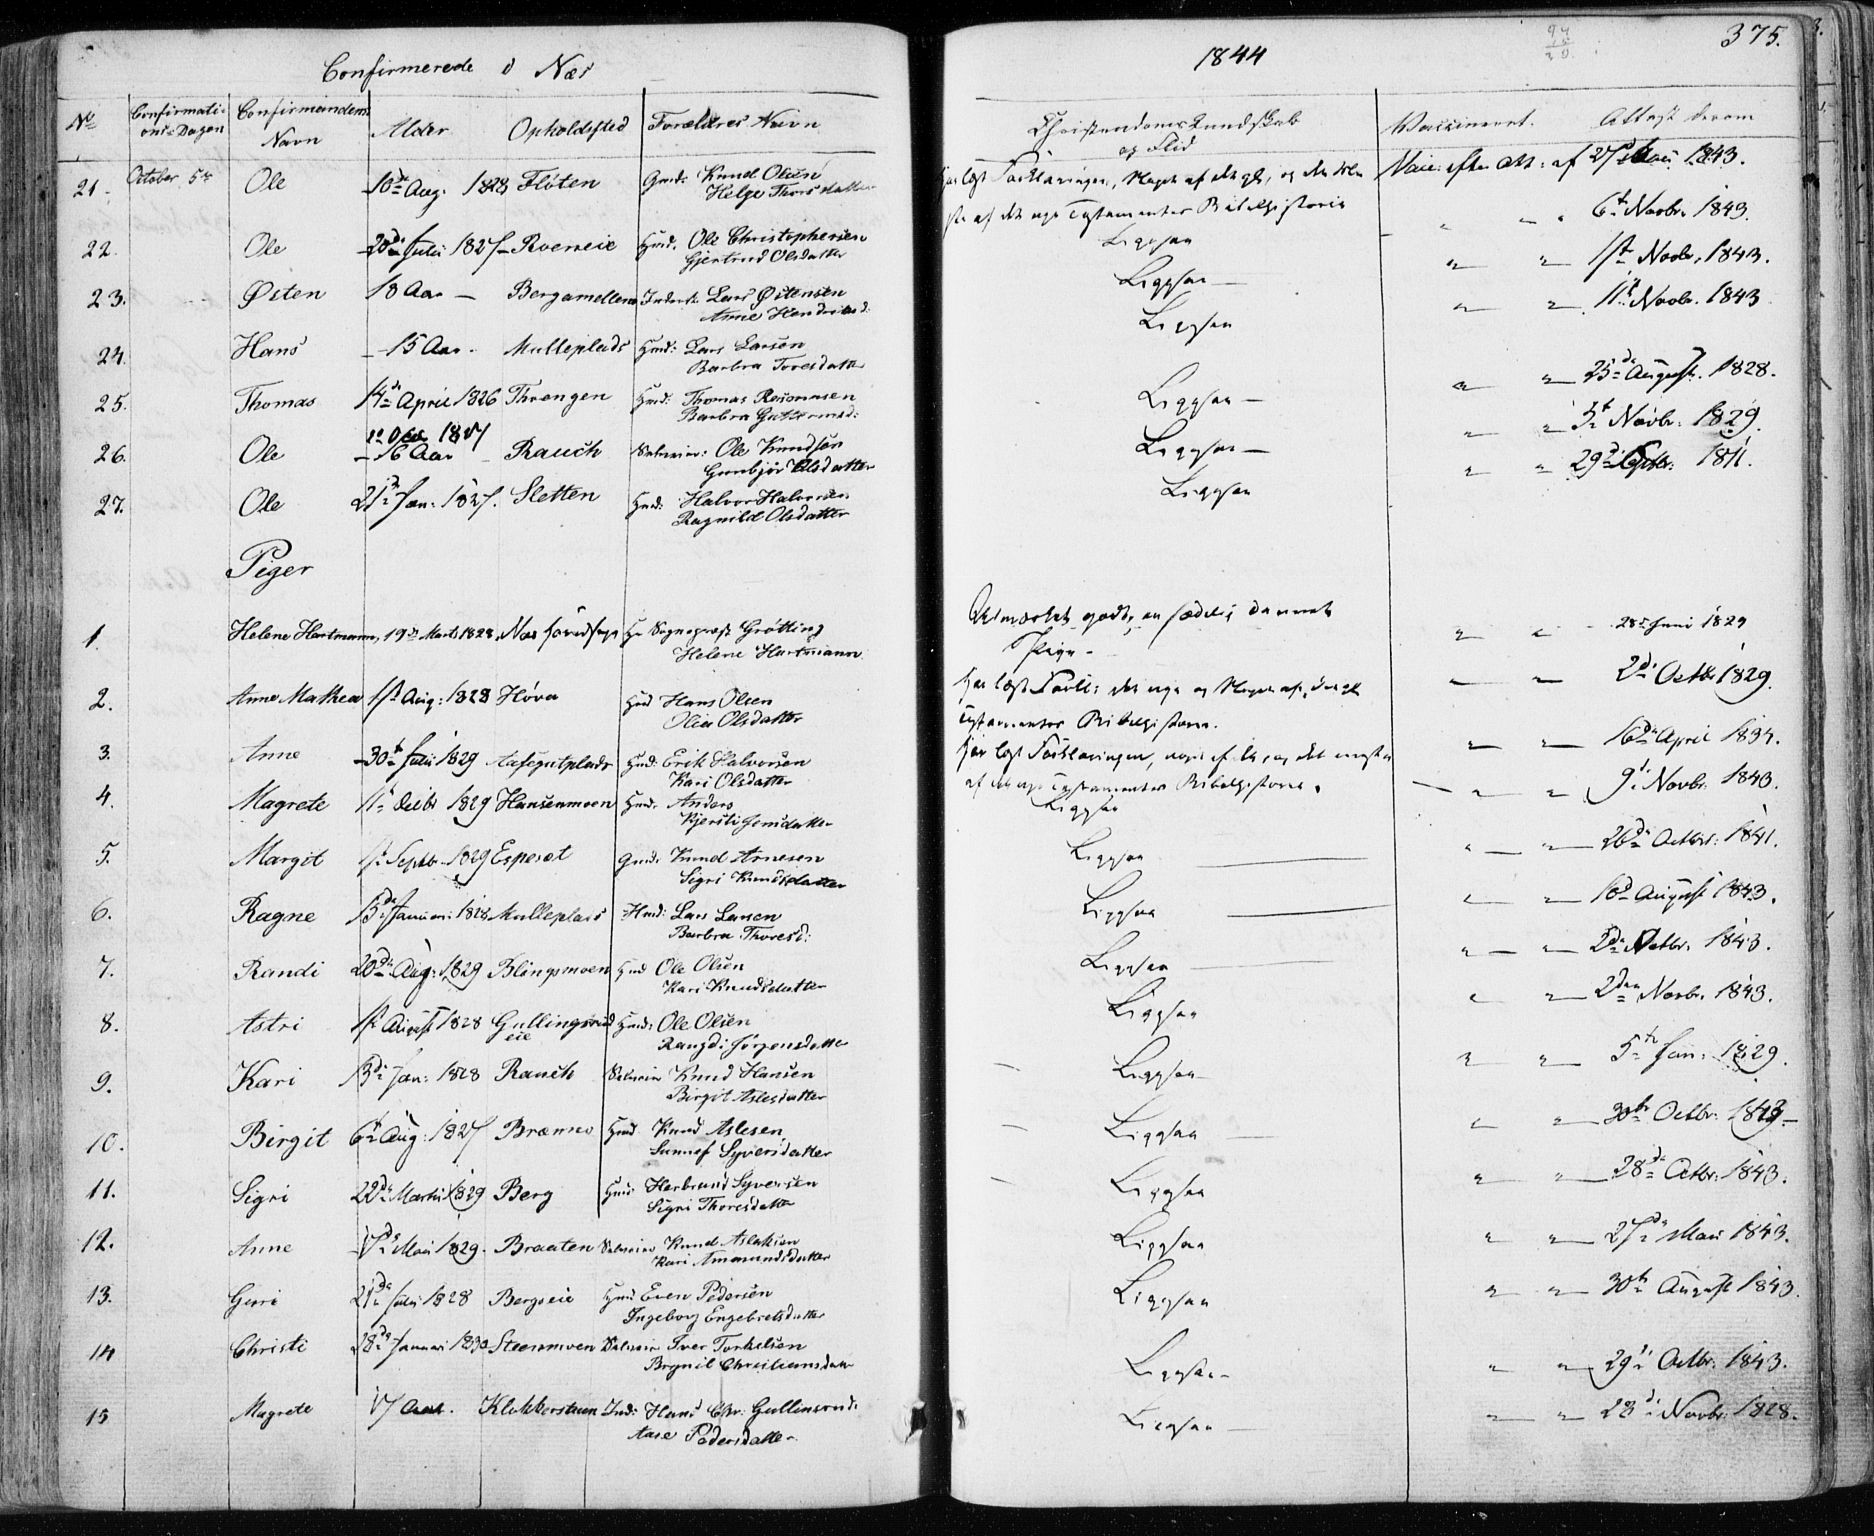 Confirmerede i Næs
1844
375.
No Confirmations-Dagen Confirmandens Navn Alder Opholdssted Forældres Navn Christendoms Kundskab og Flid Vaccineret. Attest derom
21. October 5te Ole 10de Aug. 1828 Flöten Gmd: Knud Olsen
Helge Thorsdatter
Har læst Forklaringen, Noget af det gl, og den
af det nye Testamentes Bibelhistorie
Vacc: efter Att: af 27de 1843.
22. Ole 20de Juli 1827 Roeneie Huusm. Ole Christophersen
Gjertrud Olsdatter
Ligesaa " " 6te Novbr. 1843.
23. Østen 18 Aar — Bergamellene Inderst: Lars Østensen
Anne Hendriksd:
Ligesaa — " " 1ste Novbr. 1843.
24. Hans — 15 Aar. Mulleplads Huusm: Lars Larsen
Barbra Toresdatter
Ligesaa " " 11te Novbr. 1843
25. Thomas 14de April 1826 Threngen Huusm: Thomas
Barbra Guttormsd:
Ligesaa — " " 25de August. 1828.
26. Ole — 16 Aar Rauch Selveier: Ole Knudsen
Gunbjör Olsdatter
Ligesaa — " " 5te Novbr: 1829.
27. Ole 21de Jan: 1827. Sletten Huusm: Halvor Halvorsen
Ragnild Olsdatter
Ligesaa " " 29de Septbr: 1811.
Piger
1. Helene Hartmann, 19de Marts 1828, Næs Hr Sognepræst Grötting
Helene Hartmann
Udmærket godt, en sædelig dannet
Pige -
" " 28de Juni 1829
2. Anne Mathea 1ste Aug: 1828 Höva Huusm Hans Olsen
Olia Olsdatter
Har læst Forkl: det nye og Noget af det gl
Testamentes Bibelhistorie.
— " 2de Octbr 1829.
3. Anne 30te Juli 1829 Huusm: Erik Halvorsen
Kari Olsdatter
Har læst Forklaringen, noget af det meste
af det nye Testamentes Bibelhistorie.
" " 16de April 1834.
4. Magrete 11te Decbr 1829 Hansenmoen Huusm. Anders
Kjersti Jonsdatter
Ligesaa " " 9de Novbr. 1843.
5. Margit 1ste Septbr. 1829 Esperset Gmd: Knud Arnesen
Sigri Knudsdatter
Ligesaa " " 26de Octbr: 1841.
6. Ragne 13de Januar: 1828 Mulleplads Huusm: Lars Larsen
Barbra Thoresd:
Ligesaa " " 10de August 1843.
7. Randi 20de Aug: 1829 Blingsmoen Huusm Ole Olsen
Kari Knudsdatter
Ligesaa " " 2de Octbr. 1843.
8. Astri 1ste August 1828 Gullingsrud
eie Huusm: Ole Olsen
Rangdi Jörgensdatter
Ligesaa " " 2den Novbr. 1843.
9. Kari 13de Jan: 1828 Rauch Selveier Knud Hansen
Birgit Aslesdatter
Ligesaa — " " 5te Jan: 1829.
10. Birgit 6te Aug: 1827 Brænno Huusm. Knud Aslesen
Sunnef Syversdatter
Ligesaa — " " 30te Octbr: 1843 —
11. Sigri 22de Marts 1829 Berg Huusm Herbrand Syversen
Sigri Thoresdatter
Ligesaa " " 28de Octbr: 1843.
12. Anne 17de Mai 1829. Braaten Selveier Knud Aslaksen
Kari Amundsdatter
Ligesaa " " 27de Mai 1843.
13. Guri 21de Juli 1828 Bergseie Huusm Even Pedersen
Ingeborg Engebretsdatter
Ligesaa " " 30te August 1843.
14 Christi 28de Januari 1830 Steenmoen Selveier Iver Torkelsen
Brynil Christiansdatter
Ligesaa - " " 29de Octbr: 1843.
15 Magrete 17 Aar. Klokkerstuen Ind: Hans Chr: Gullinsrud:
Aase Pedersdatter
Ligesaa — " " 23de Novbr. 1828.